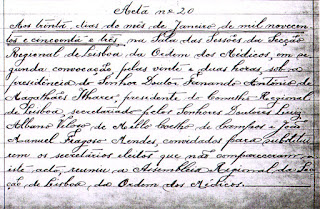 Acta nº 20
Aos trinta, dias do mês de Janeiro de mil novecen
tos e cincoenta e três, na Sala das Sessões da Secção
Regional de Lisboa da Ordem dos Médicos, em se
gunda convocação pelas vinte e duas horas, sob a
presidência do Senhor Doutor Fernando António de
Magathães Ilharco: presidente do Conselho Regional
de Lisboa, secretariado pelos Senhores Doutores Luiz
Albano Veloso de Mello Coelho de Campos e João
Manuel Fragoso Mendes, convidados para substitui
rem os secretários eleitos que não compareceram a
este acto, reuniu a Assembleia Regional da Sec
ção de Lisboa, da Ordem dos Médicos.